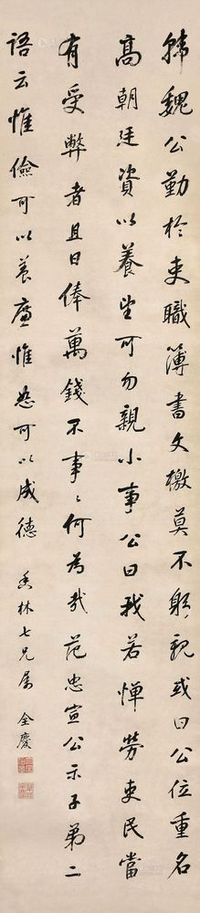 韩魏公勤於吏職簿書文檄莫不躬親或曰公位重名
高朝廷資以養望可勿親小事公曰我若憚勞吏民當
有受弊者且日俸萬錢不事〻何為哉范忠宣公示子弟二
語云惟儉可以養廉惟恕可以成德
林七兄屬 全慶